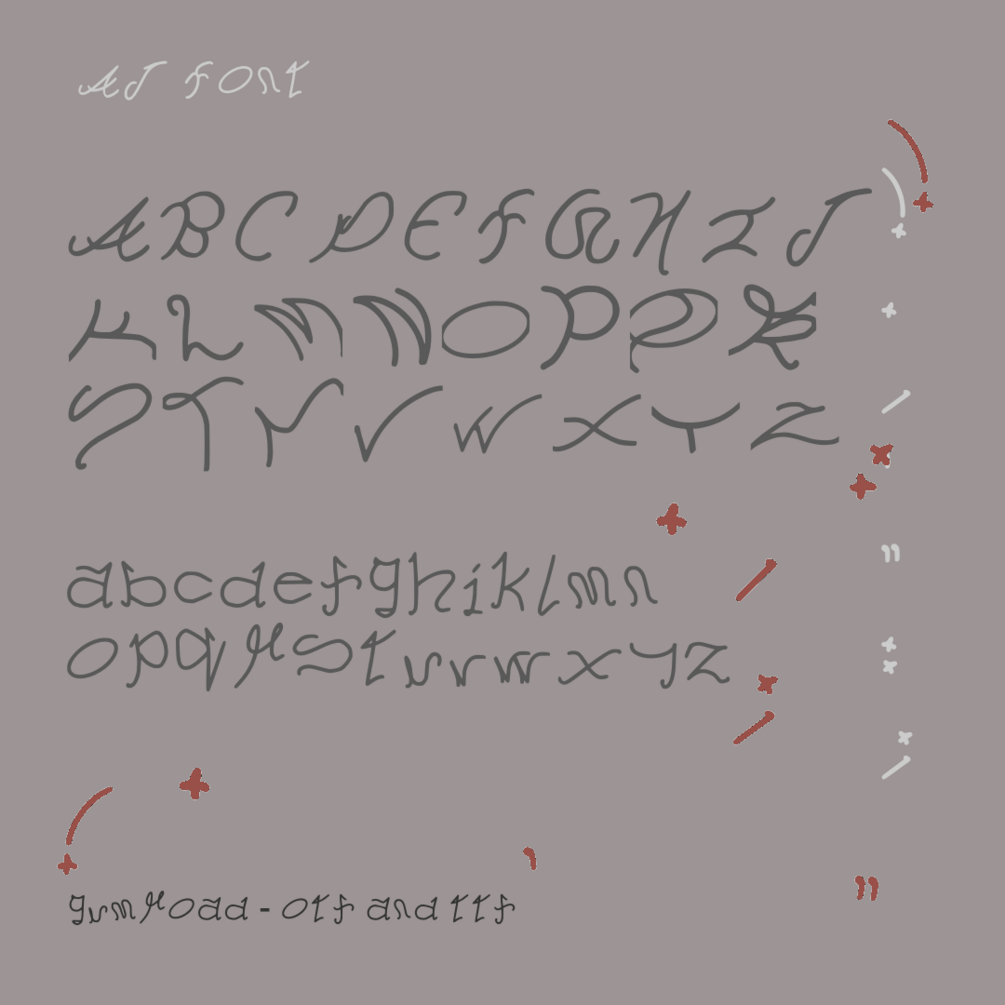 AJ font
ABCDEFGHIJ
KLMNOPQR
STUVWXYZ
abcdefghiklmn
opqrstuvwxyz
gumroad - otf and ttf